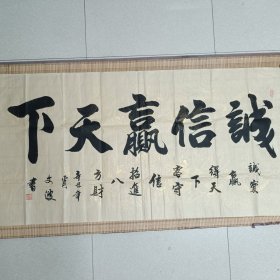 誠信贏天下
誠實
贏
得天
下
守
信
招進
八
方財
年
文波
書